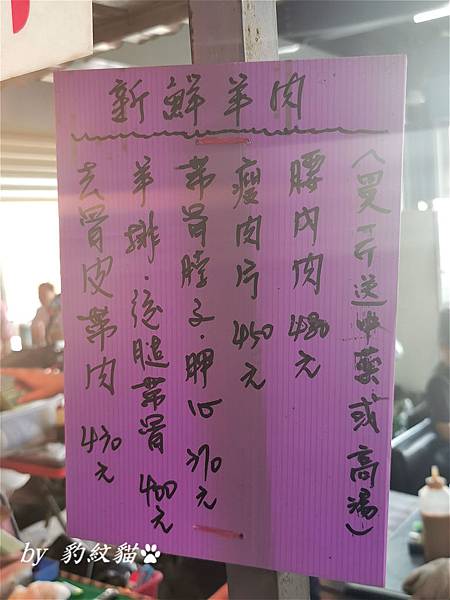 新鮮羊肉
(買斤送中藥或高湯)
腰內肉 480元
瘦肉片 450元
帶骨腱子.胛心 390元
羊排.後腿帶骨 400元
去骨皮帶肉 430元
by 豹紋貓